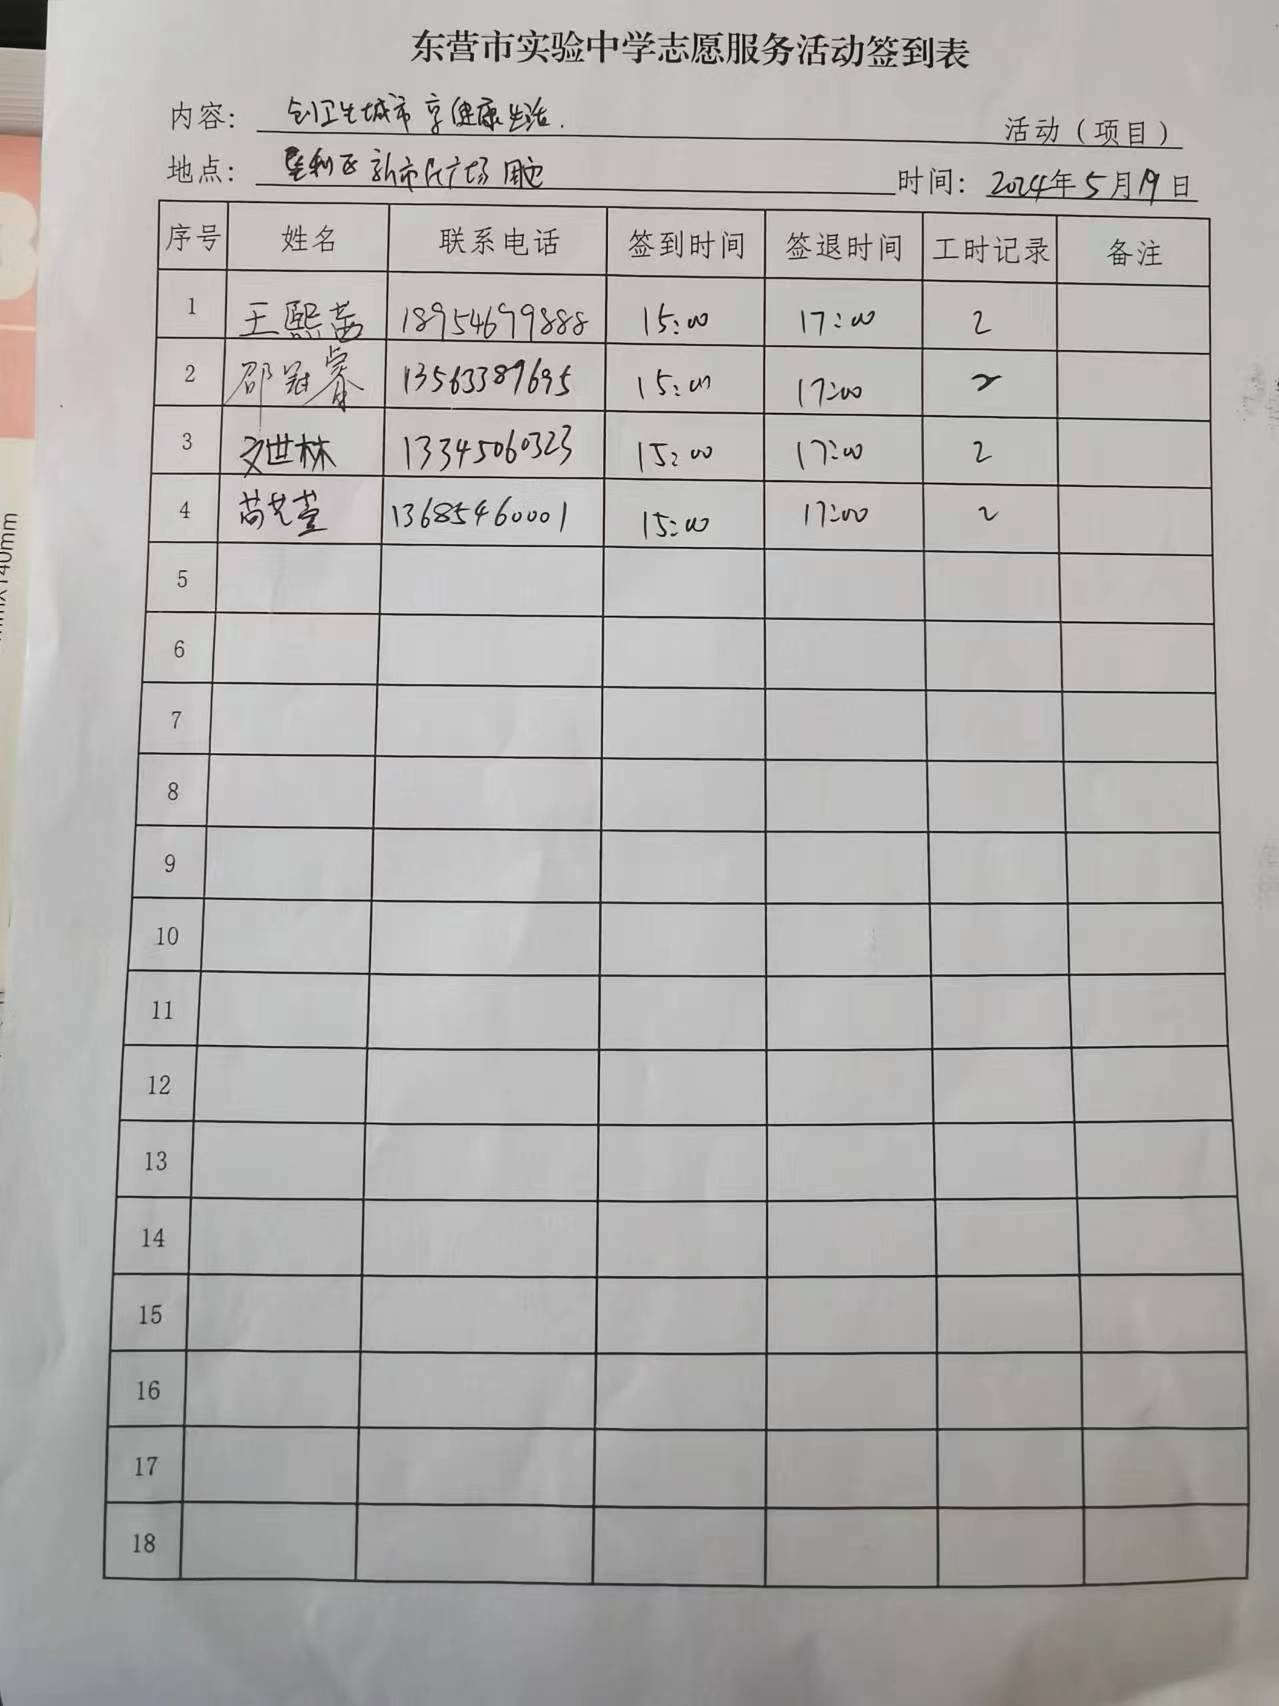 东营市实验中学志愿服务活动签到表
内容: 创卫生城市 享健康生活. 活动（项目）
地点: 垦利区新市民广场周边 时间: 2024年5月19日
序号 姓名 联系电话 签到时间 签退时间 工时记录 备注
1 王熙茜 18954679888 15:00 17:00 2
2 邵冠睿 13563387695 15:00 17:00 2
3 文世林 13345060323 15:00 17:00 2
4 13685460001 15:00 17:00 2
5
6
7
8
9
10
11
12
13
14
15
16
17
18
mmx140mm